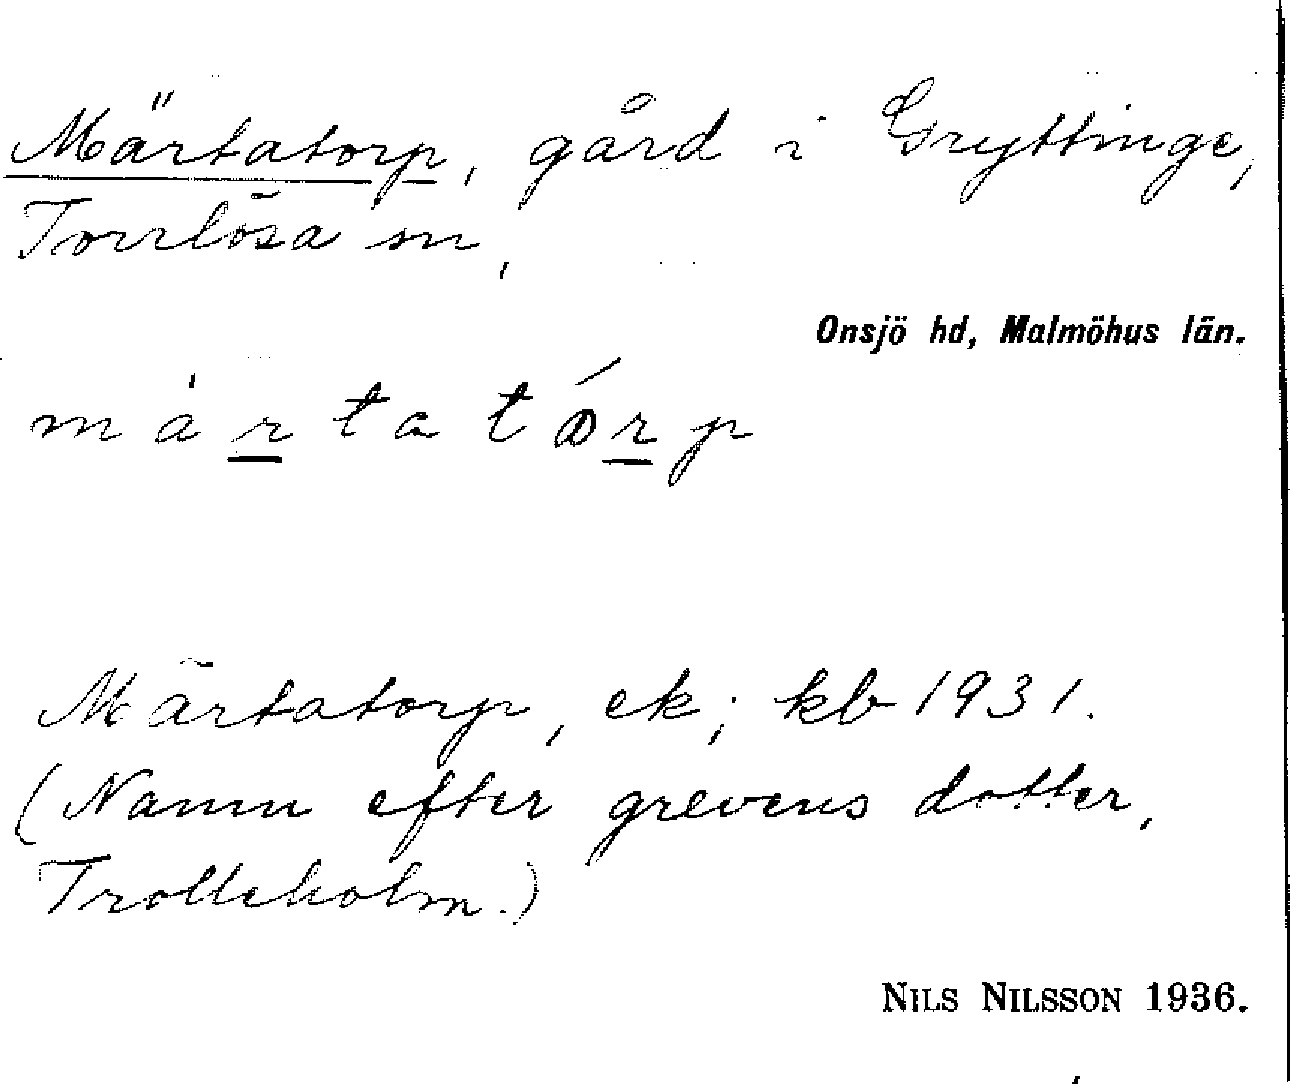 Märtatorp, gård i Gryttinge,
Torrlösa sn,
Onsjö hd, Malmöhus län.
màrtatórp
Märtatorp, ek; kb 1931.
(Namn efter grevens dotter,
Trolleholm.)
NILS NILSSON 1936.